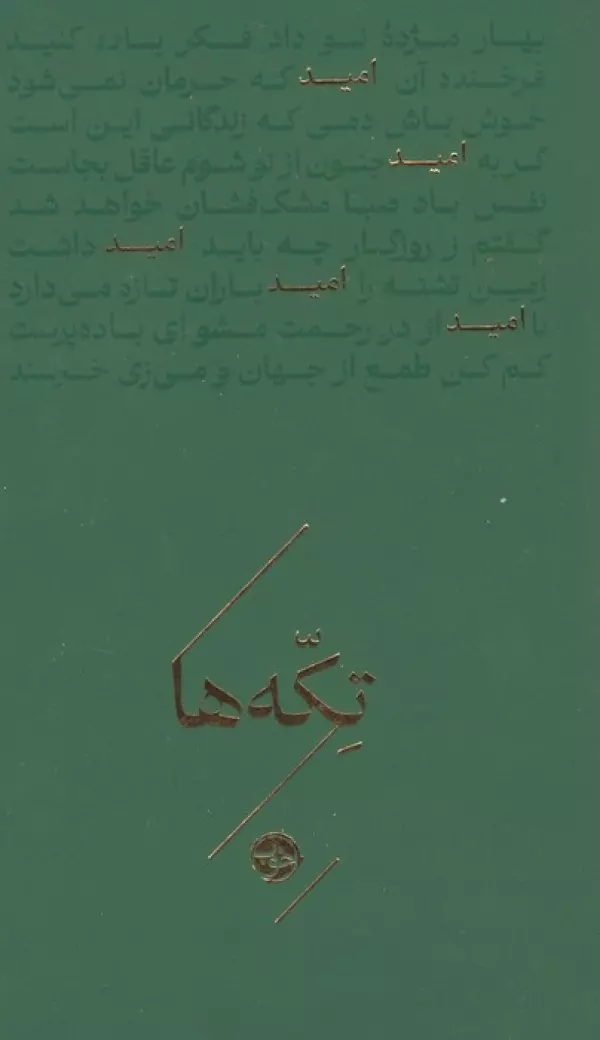 بهار مژدهٔ نو داد فکر باده کنید
فرخنده آن امید که حرمان نمی‌شود
خوش باش دمی که زندگانی این است
گر به امید جنون از تو شوم عاقل بجاست
نفس باد صبا مشک‌فشان خواهد شد
گفتم ز روزگار چه باید امید داشت
زمین تشنه را امید باران تازه می‌دارد
نا امید از در رحمت مشو ای باده‌پرست
کم کن طمع از جهان و می‌زی خرسند
تِکّه‌ها